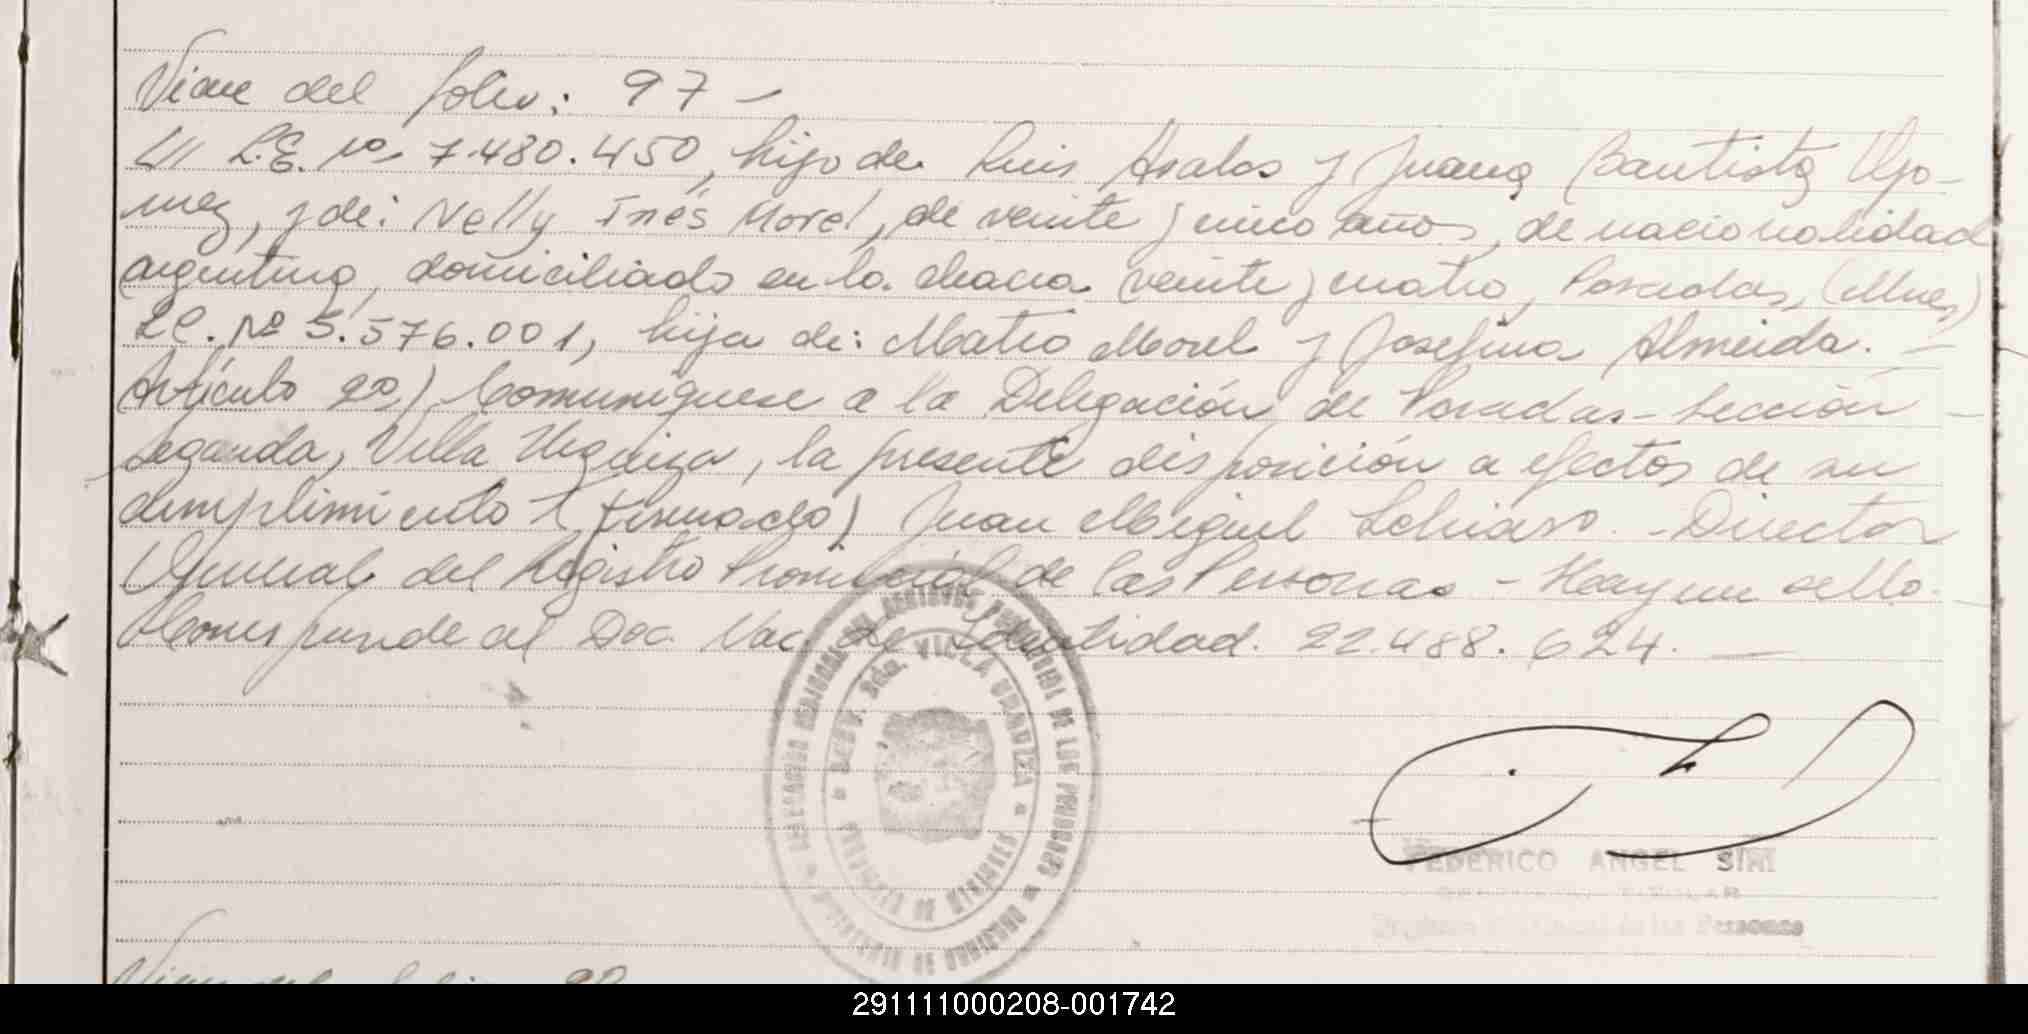 Viene del folio: 97 -
/// L.E. Nº 7.480.450, hijo de Luis Avalos y Juana Bautista Go-
mez, y de: Nelly Inés Morel, de veinte y cinco años, de nacionalidad
argentina, domiciliada en la chacra veinte y cuatro, Posadas, (Mnes)
LC. Nº 5.576.001, hija de: Mateo Morel y Josefina Almeida. -
Artículo 2º) Comuníquese a la Delegación de Posadas - Sección
Segunda, Villa Urquiza, la presente disposición a efectos de su
cumplimiento (firmado) Juan Miguel - Director
General del Registro Provincial de las Personas - Hay un sello.
Corresponde al Doc. Nac. de Identidad. 22.488.624. -
REGISTRO PROVINCIAL DE LAS PERSONAS
Sda. VILLA URQUIZA
PROVINCIA DE MISIONES
FEDERICO ANGEL
de las Personas
291111000208-001742